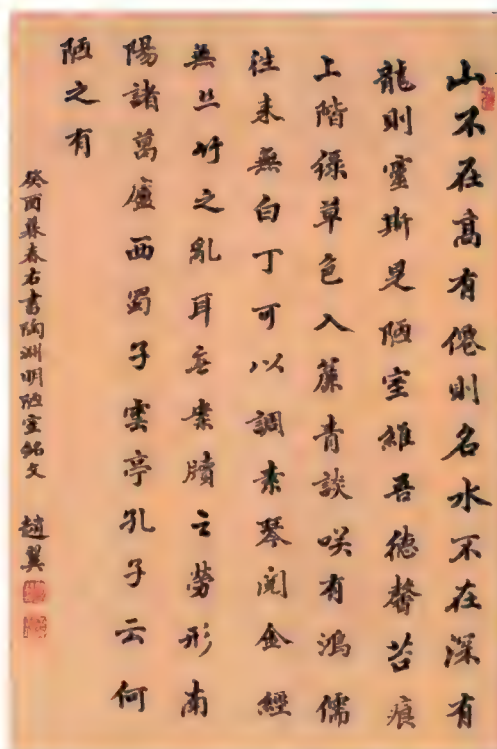 山不在高有僊則名水不在深有
龍則靈斯是陋室維吾德馨苔痕
上階綠草色入簾青談咲有鴻儒
往来無白丁可以調素琴閱金經
無丝竹之亂耳无案牘之勞形南
陽諸葛廬西蜀子雲亭孔子云何
陋之有
癸酉暮春右書陶淵明陋室銘文 趙翼